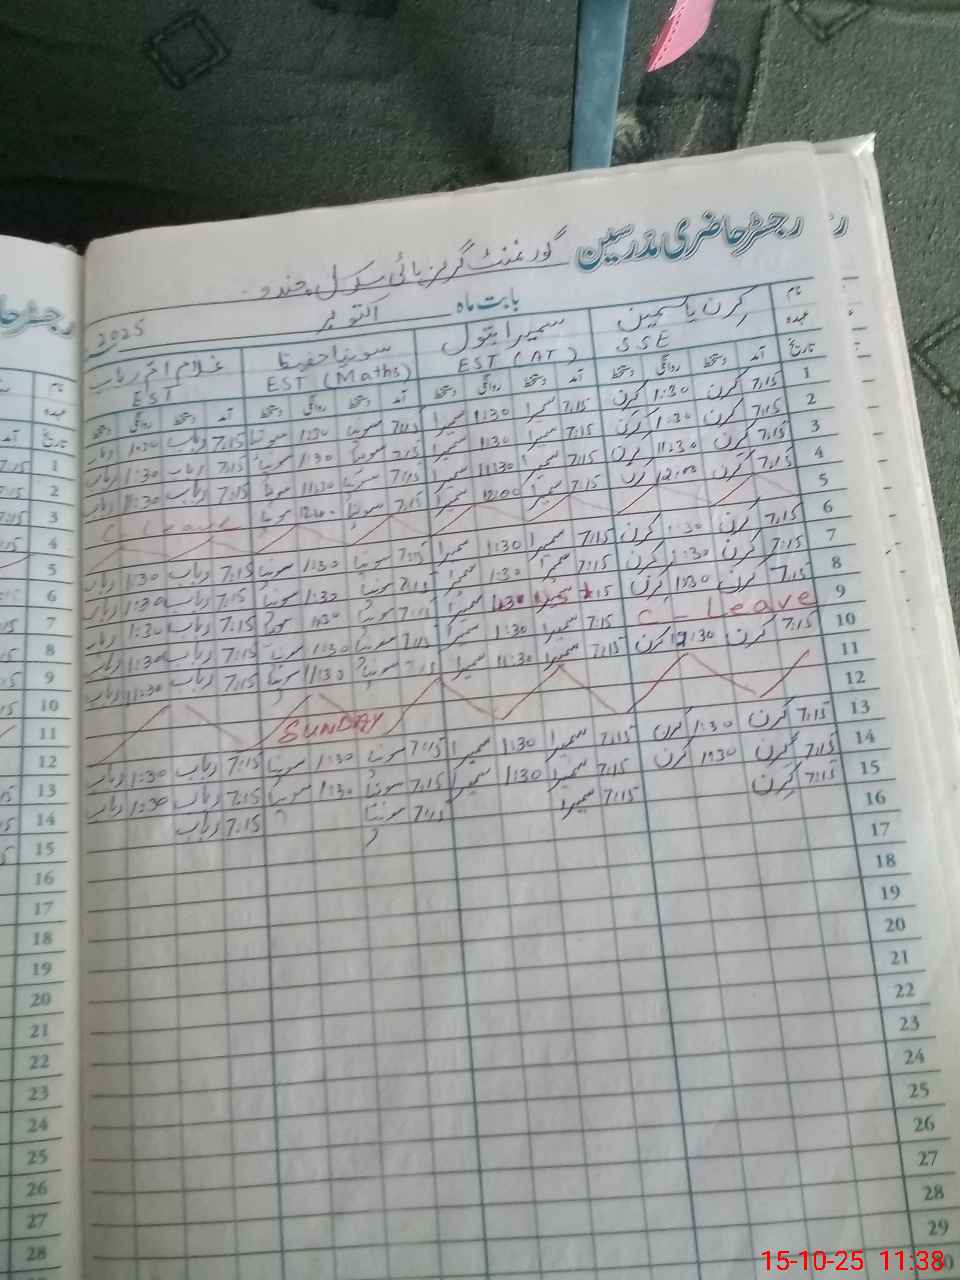 رجسٹر حاضری مدرسین گورنمنٹ گرلز ہائی سکول جندو
بابت ماہ اکتوبر 2025
نام کرن یاسمین سمیرا بتول سونیا حفیظ غلام ام رباب
عہدہ SSE EST (AT) EST (Maths) EST
تاریخ آمد دستخط روانگی دستخط آمد دستخط روانگی دستخط آمد دستخط روانگی دستخط آمد دستخط روانگی دستخط
1 7:15 کرن 1:30 کرن 7:15 سمیرا 1:30 سمیرا 7:15 سونیا 1:30 سونیا 7:15 رباب 1:30 رباب
2 7:15 کرن 1:30 کرن 7:15 سمیرا 1:30 سمیرا 7:15 سونیا 1:30 سونیا 7:15 رباب 1:30 رباب
3 7:15 کرن 11:30 کرن 7:15 سمیرا 11:30 سمیرا 7:15 سونیا 11:30 سونیا 7:15 رباب 11:30 رباب
4 7:15 کرن 12:00 کرن 7:15 سمیرا 12:00 سمیرا 7:15 سونیا 12:00 سونیا C Leave
5
6 7:15 کرن 1:30 کرن 7:15 سمیرا 1:30 سمیرا 7:15 سونیا 1:30 سونیا 7:15 رباب 1:30 رباب
7 7:15 کرن 1:30 کرن 7:15 سمیرا 1:30 سمیرا 7:15 سونیا 1:30 سونیا 7:15 رباب 1:30 رباب
8 7:15 کرن 1:30 کرن 7:15 سمیرا 1:30 سمیرا 7:15 سونیا 1:30 سونیا 7:15 رباب 1:30 رباب
9 C - Leave 7:15 سمیرا 1:30 سمیرا 7:15 سونیا 1:30 سونیا 7:15 رباب 1:30 رباب
10 7:15 کرن 12:30 کرن 7:15 سمیرا 11:30 سمیرا 7:15 سونیا 11:30 سونیا 7:15 رباب 11:30 رباب
11
12 SUNDAY
13 7:15 کرن 1:30 کرن 7:15 سمیرا 1:30 سمیرا 7:15 سونیا 1:30 سونیا 7:15 رباب 1:30 رباب
14 7:15 کرن 1:30 کرن 7:15 سمیرا 1:30 سمیرا 7:15 سونیا 1:30 سونیا 7:15 رباب 1:30 رباب
15 7:15 کرن 7:15 سمیرا 7:15 سونیا 7:15 رباب
16
17
18
19
20
21
22
23
24
25
26
27
28
29
30
نام
عہدہ
تاریخ
1
2
3
4
5
6
7
8
9
10
11
12
13
14
15
16
17
18
19
20
21
22
23
24
25
26
27
28
15-10-25 11:38